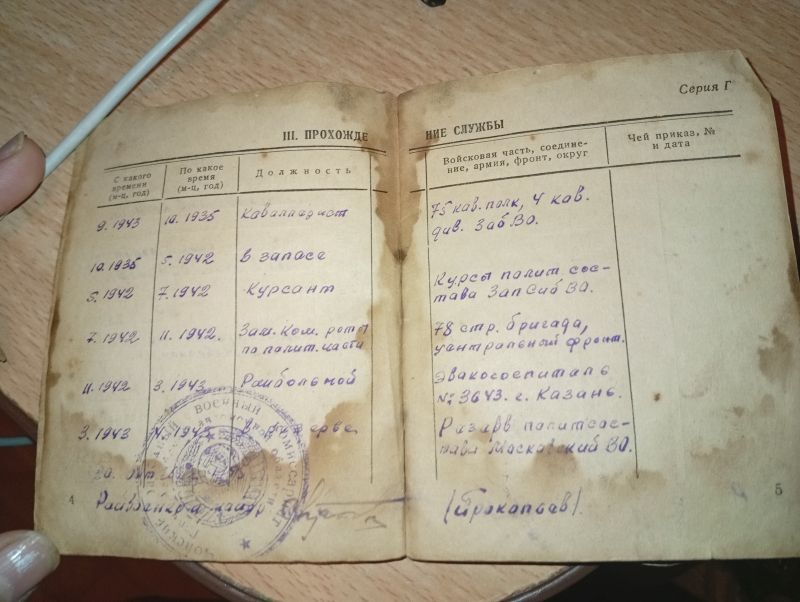 Серия Г
III. ПРОХОЖДЕНИЕ СЛУЖБЫ
С какого времени (м-ц, год)
По какое время (м-ц, год)
Должность
Войсковая часть, соедине-
ние, армия, фронт, округ
Чей приказ, №
и дата
9. 1943 10. 1935 Кавалладист 75 кав. полк, 4 кав.
див. Заб ВО.
10. 1935 5. 1942 в запасе
5. 1942 7. 1942 Курсант Курсы полит. сос-
тава ЗапСиб ВО.
7. 1942 11. 1942. Зам. Ком. роты 78 стр. бригада,
по полит. части центральный фронт.
11. 1942 3. 1943 Раибольной Эвакогоспиталь
№ 3643. г. Казань.
3. 1943 4. 194 Резарв политсос-
тава Московский ВО.
ВОЕННЫЙ КОМИССАРИАТ
4
(Прокапаав).
5